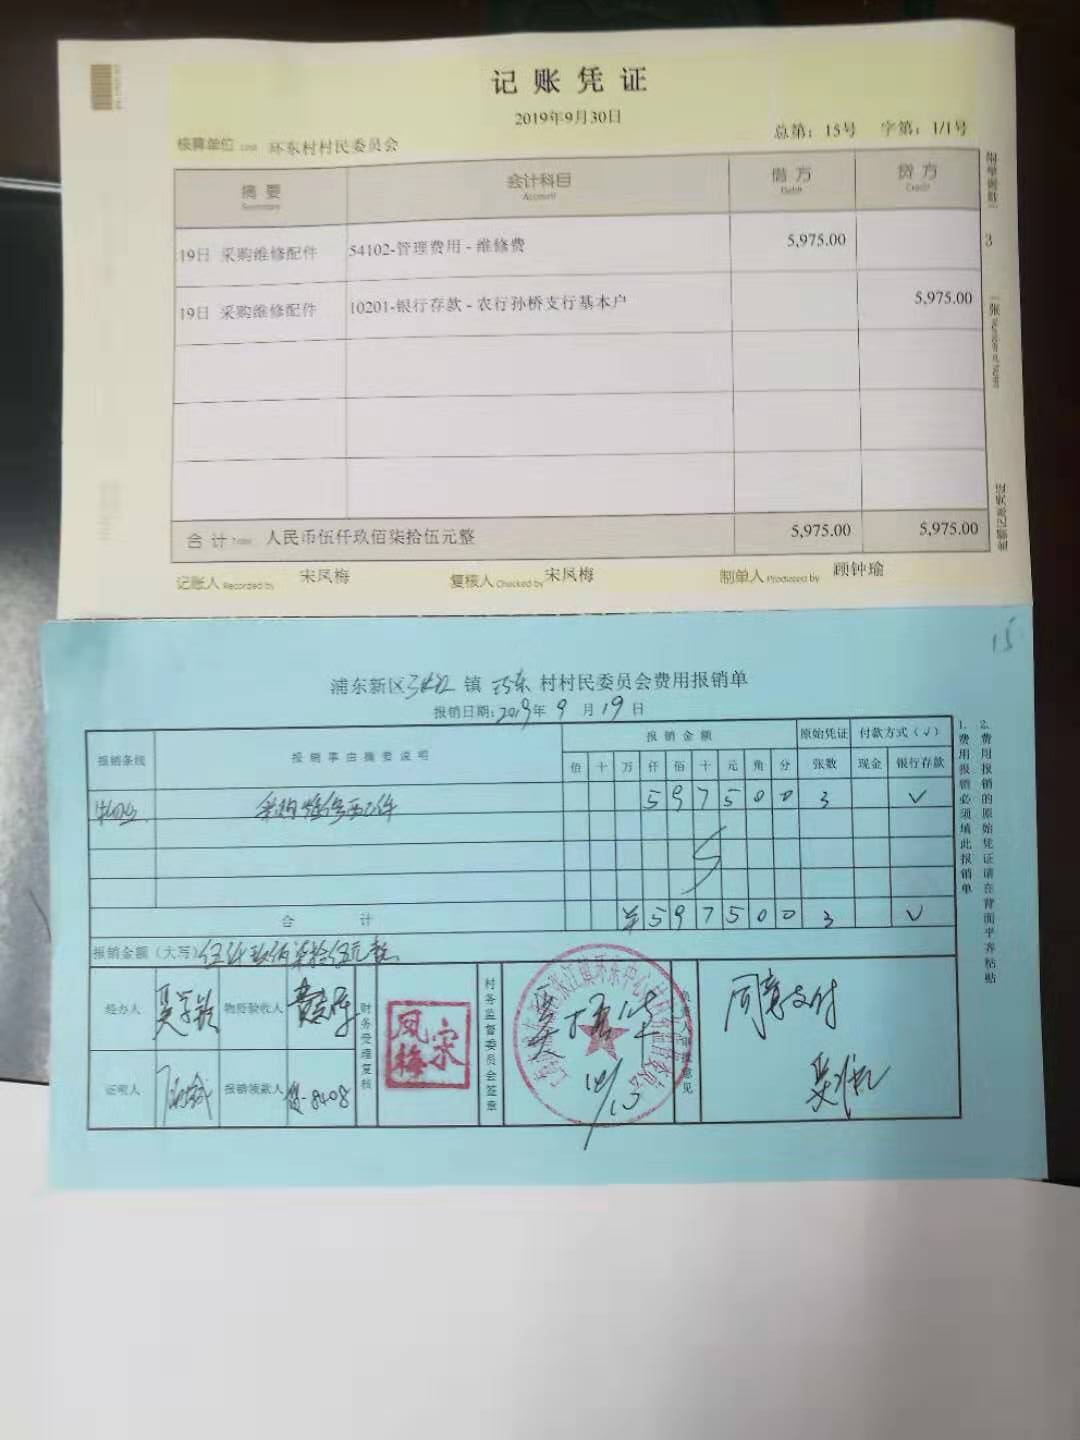 记账凭证
2019年9月30日
总第：15号 字第：1/1号
核算单位 环东村村民委员会
摘要 会计科目 借方 贷方
Summary Account Debit Credit
19日 采购维修配件 54102-管理费用 - 维修费 5,975.00
19日 采购维修配件 10201-银行存款 - 农行孙桥支行基本户 5,975.00
合计 Total 人民币伍仟玖佰柒拾伍元整 5,975.00 5,975.00
记账人 Recorded by 宋凤梅 复核人 Checked by 宋凤梅 制单人 Produced by 顾钟瑜
附单据数
3
张
金额记账凭证
15
浦东新区张江镇环东村村民委员会费用报销单
报销日期：2019年9月19日
报销条线 报销事由摘要说明 报销金额 原始凭证 付款方式（√）
佰 十 万 仟 佰 十 元 角 分 张数 现金 银行存款
采购维修配件 5 9 7 5 0 0 3 √
合计 ¥ 5 9 7 5 0 0 3 √
报销金额（大写） 伍仟玖佰柒拾伍元整
经办人 物资验收人 财务受理复核 村务监督委员会签章 同意支付
证明人 报销领款人
宋凤梅
10/13
1.费用报销必须填此报销单
2.费用报销的原始凭证请在背面平齐粘贴